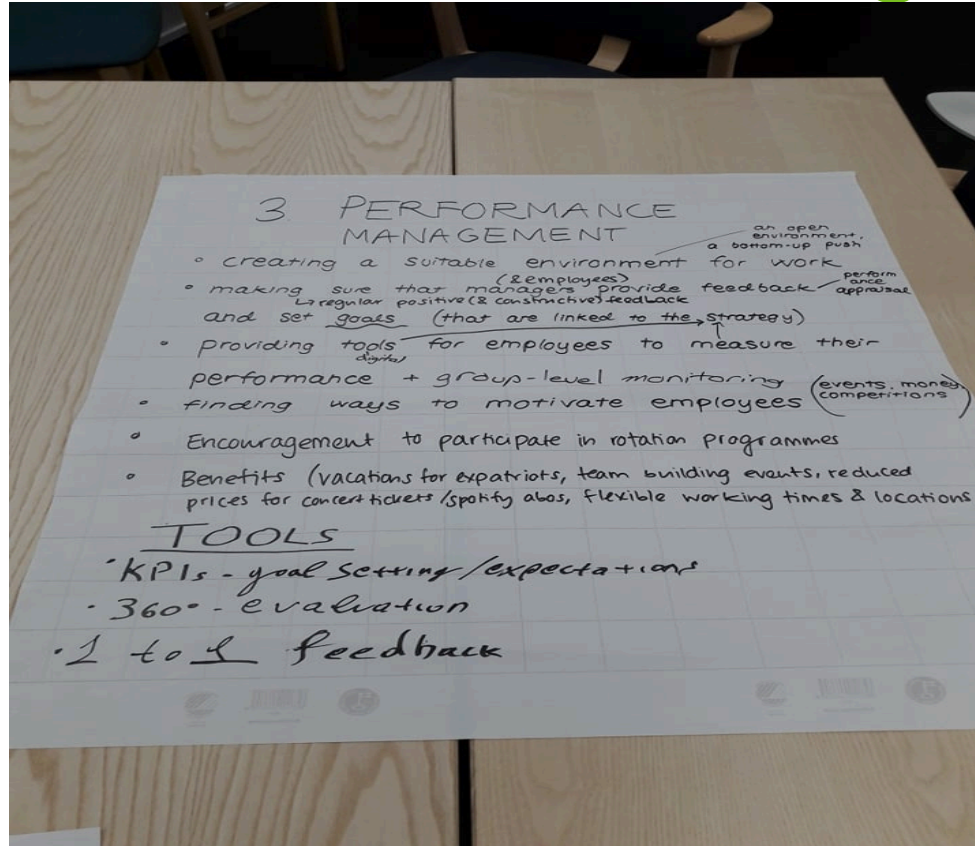 3 PERFORMANCE
MANAGEMENT
an open
environment,
a bottom-up push
• creating a suitable environment for work
(& employees)
• making sure that managers provide feedback
performance
appraisal
↳ regular positive (& constructive) feedback
and set goals (that are linked to the strategy)
• providing tools for employees to measure their
digital
performance + group-level monitoring
• finding ways to motivate employees (events, money
competitions)
• Encouragement to participate in rotation programmes
• Benefits (vacations for expatriots, team building events, reduced
prices for concert tickets/spotify abos, flexible working times & locations
TOOLS
• KPIs - goal setting/expectations
• 360° - evaluation
• 1 to 1 feedback